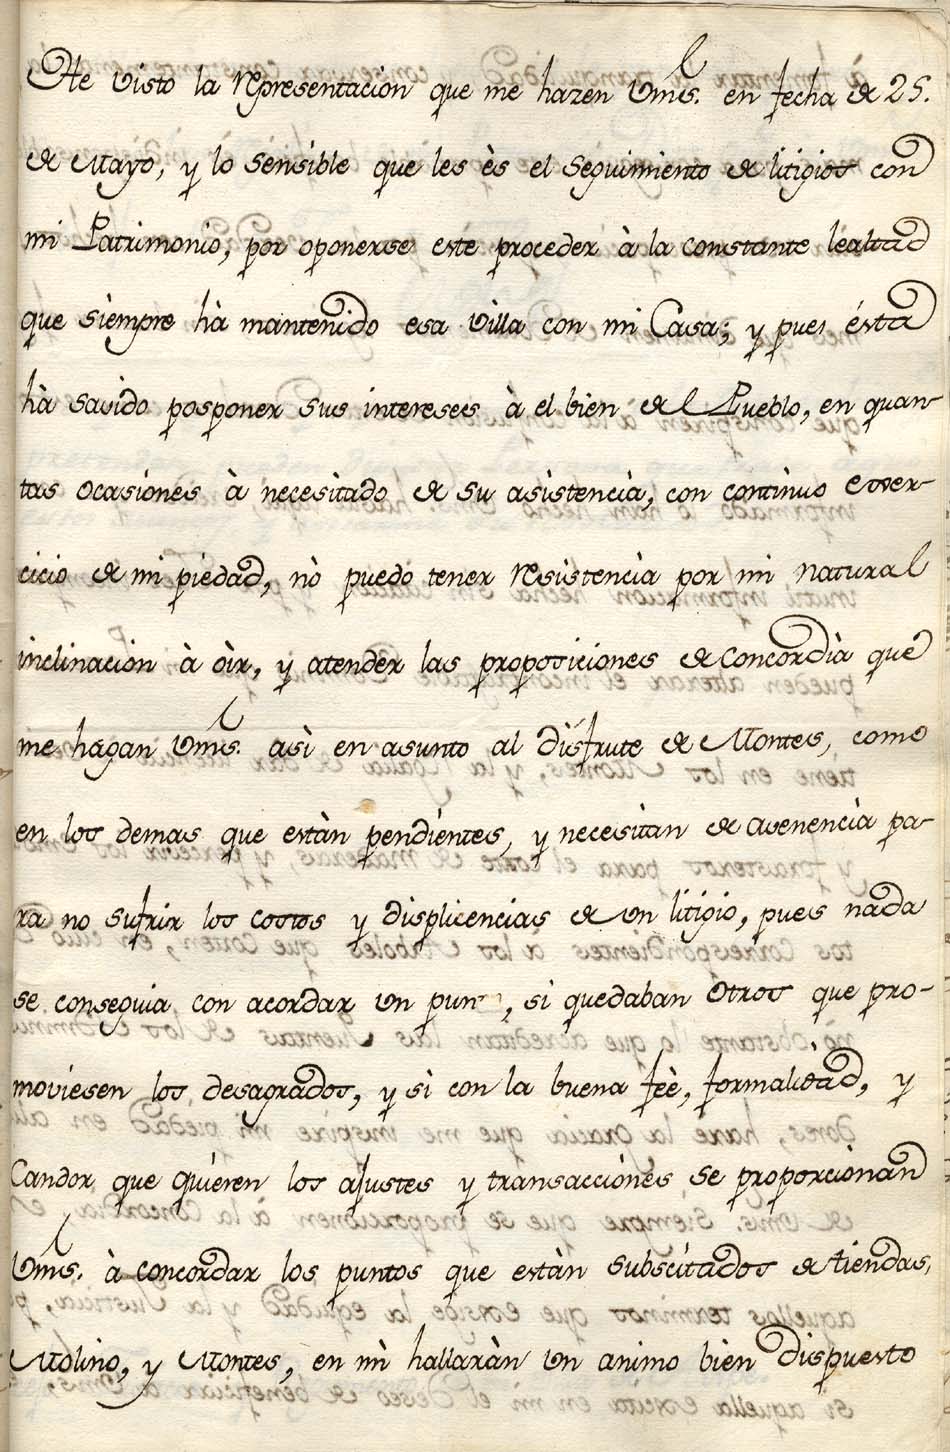 He visto la representacion que me hazen Vms. en fecha de 25.
de Mayo, y lo sensible que les ès el seguimiento de litigios con
mi Patrimonio, por oponerse este proceder à la constante lealtad
que siempre hà mantenido esa Villa con mi Casa; y pues ésta
hà savido posponer sus intereses à el bien del Pueblo, en quan-
tas ocasiones à necesitado de su asistencia, con continuo exer-
cicio de mi piedad, nò puedo tener resistencia por mi natural
inclinacion à oìr, y atender las proposiciones de concordia que
me hagan Vms. asì en asunto al disfrute de Montes, como
en los demas que estàn pendientes, y necesitan de avenencia pa-
ra no sufrir los costos y displicencias de un litigio, pues nada
se conseguia con acordar un pun , si quedaban òtros que pro-
moviesen los desagrados, y sì con la buena feè, formalidad, y
Candor que quieren los ajustes y transacciones se proporcionan
Vms. à concordar los puntos que estàn subscitados de tiendas,
Molino, y Montes, en mì hallaràn un animo bien dispuesto